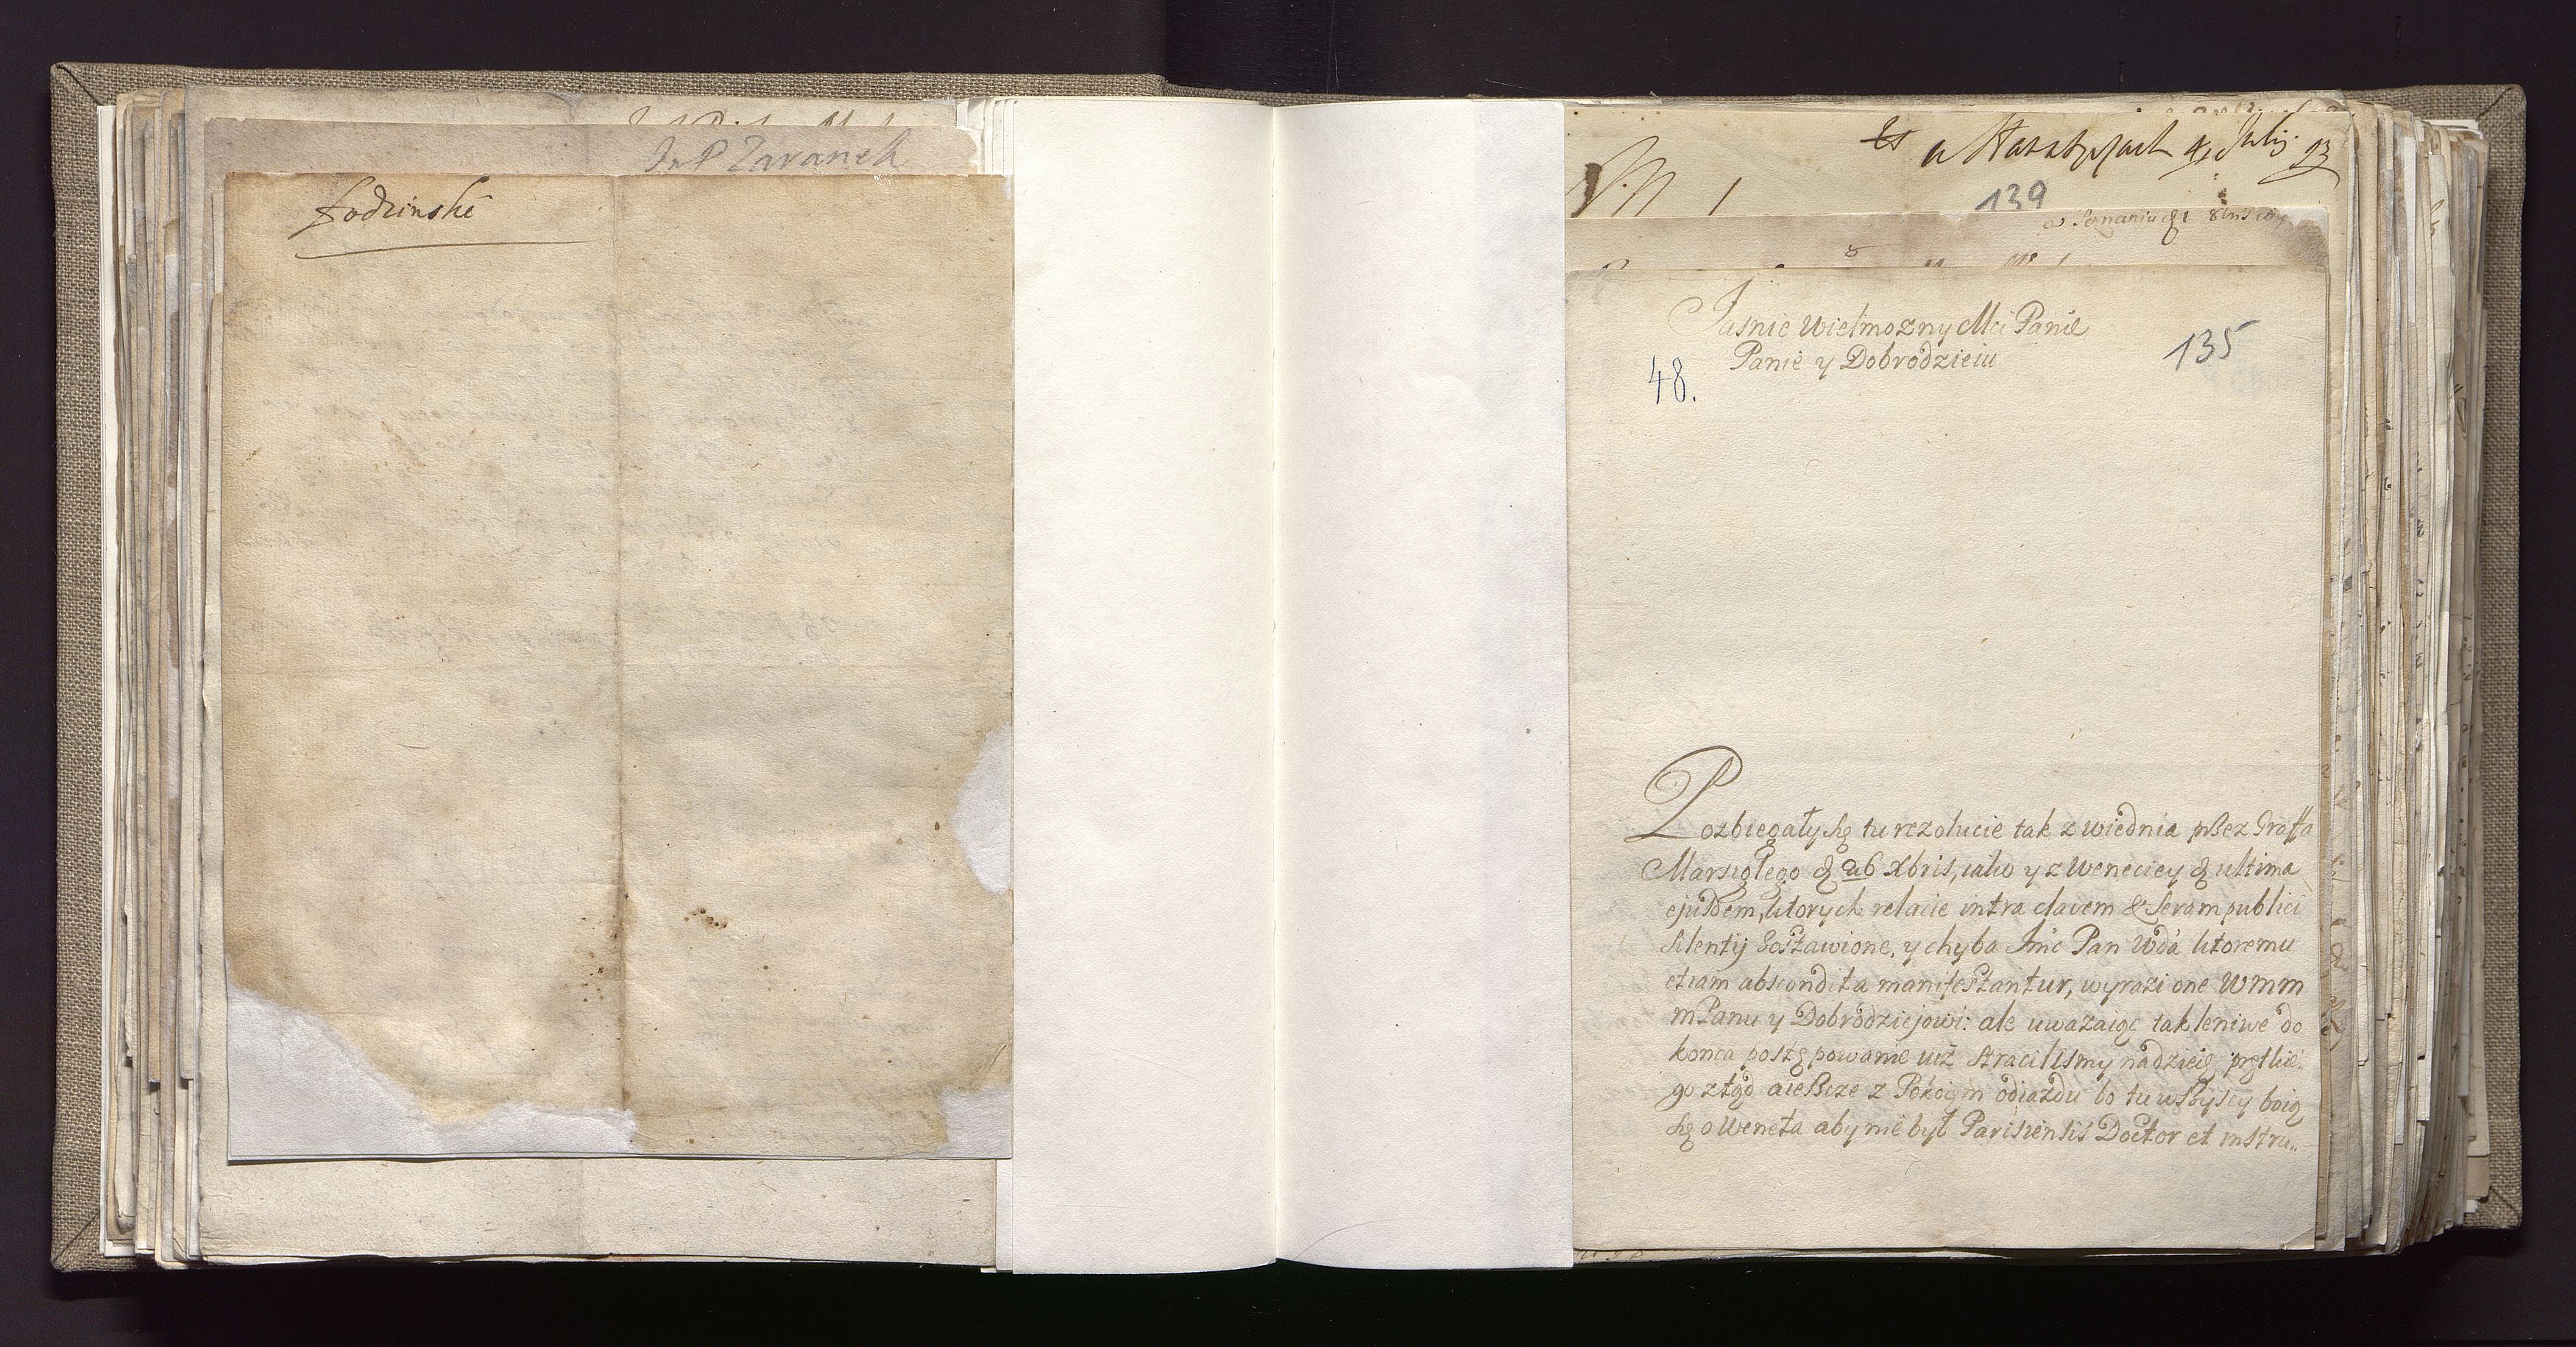 JmP Zaranek
Łodzinski
w Poznaniu
139
Jasnie Wielmozny Mci Panie
Panie y Dobrodzieiu
135
48.
Pozbiegały się tu rezolucie tak z wiednia przez Graffa
Marsiglego & 26 Xbris, iako y z Weneciey & ultima
ejusdem, ktorych relacie intra clavem & seram publici
silentij zostawione, y chyba Jmc Pan Wda ktoremu
etiam abscondita manifestantur, wyrazi one Wmm
mPanu y Dobrodziejowi: ale uwazaiąc tak leniwe do
konca postępowanie iuż stracilismy nadzieię prętkie.
go ztąd aieszcze z Pokoiem odiazdu bo tu wszyscy boią
się o Weneta aby nie był Parisiensis Doctor et instru..